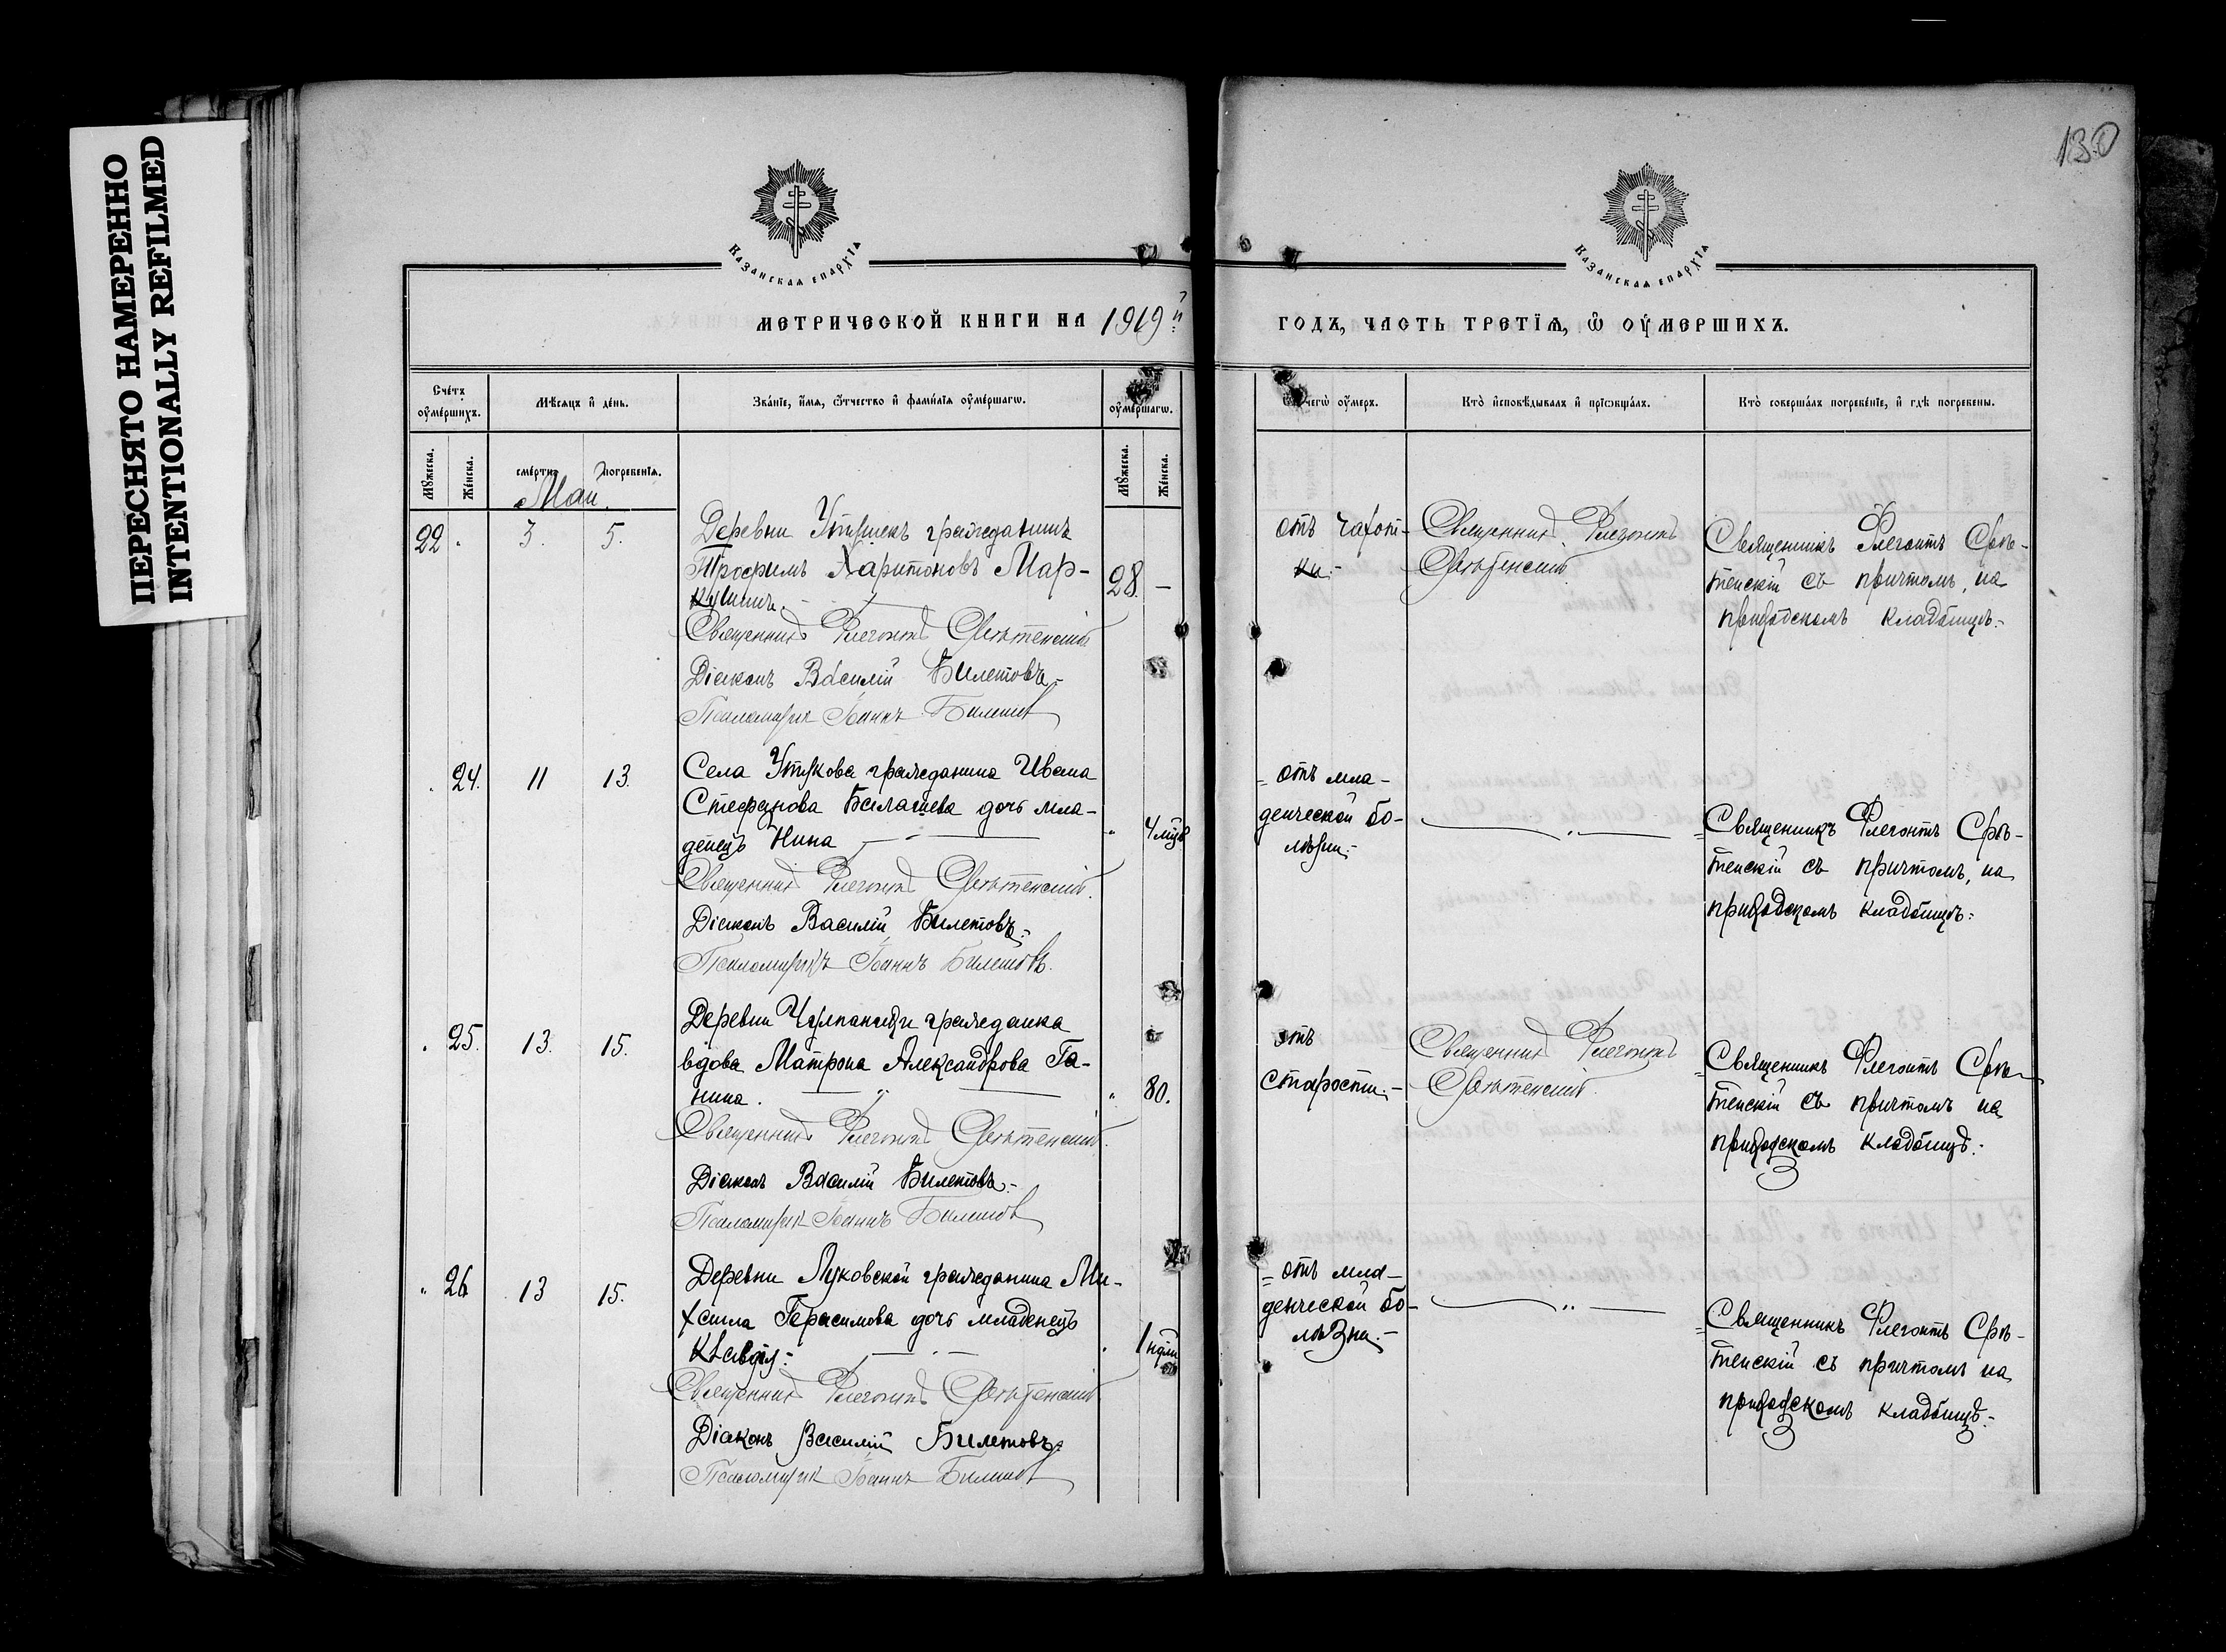 ПЕРЕСНЯТО НАМЕРЕННО
INTENTIONALLY REFILMED
130
КАЗАНСКАѦ ЕПАРХІѦ
КАЗАНСКАѦ ЕПАРХІѦ
МЕТРИЧЕСКОЙ КНИГИ НА 1919й
ГОДЪ, ЧАСТЬ ТРЕТІѦ, Ѡ ОУМЕРШИХЪ.
Счетъ оумершихъ.
Мѣсяцъ и день.
Званіе, имя, отчество и фамилія оумершагѡ.
оумершагѡ.
чегѡ оумеръ.
Кто исповѣдывалъ и пріѡбщалъ.
Кто совершалъ погребеніе, и гдѣ погребены.
Мужеска.
Женска.
смерти.
погребенія.
Мужеска.
Женска.
Май.
22 " 3. 5.
Деревни Утяшекъ гражданинъ
Трофимъ Харитоновъ Мар-
кушинъ.
28. —
Священникъ Флегонтъ Срѣтенскій
Діаконъ Василій Билетовъ.-
Псаломщикъ Іоаннъ Билетов
отъ чахот-
ки.-
Священникъ Флегонтъ
Срѣтенскій
Священникъ Флегонтъ Срѣ-
тенскій съ причтомъ, на
приходскомъ кладбищѣ.-
" 24. 11 13.
Села Утякова гражданина Ивана
Стефанова Балашева дочь мла-
денецъ Нина
" 4 мцѣ
Священникъ Флегонтъ Срѣтенскій.
Діаконъ Василій Билетовъ.-
Псаломщикъ Іоаннъ Билетовъ.
= отъ мла-
денческой бо-
лѣзни.-
— " —
Священникъ Флегонтъ Срѣ-
тенскій съ причтомъ, на
приходскомъ кладбищѣ:
" 25. 13. 15.
Деревни гражданка
вдова Матрона Александрова Га-
нина. — " —
" 80.
Священникъ Флегонтъ Срѣтенскій.
Діаконъ Василій Билетовъ.-
Псаломщик Іоаннъ Билетов
отъ
старости.-
Священникъ Флегонтъ
Срѣтенскій
Священникъ Флегонтъ Срѣ-
тенскій съ причтомъ на
приходскомъ кладбищѣ.
" 26 13 15.
Деревни Луковской гражданина Ми-
хаила Герасимова дочь младенецъ
Клавдія: — " —
" 1 ндли
Священникъ Флегонтъ Срѣтенскій
Діаконъ Василій Билетовъ
Псаломщик Іоаннъ Билетов
= отъ мла-
денческой бо-
лѣзни.-
— " —
Священникъ Флегонтъ Срѣ-
тенскій съ причтомъ на
приходскомъ кладбищѣ.-